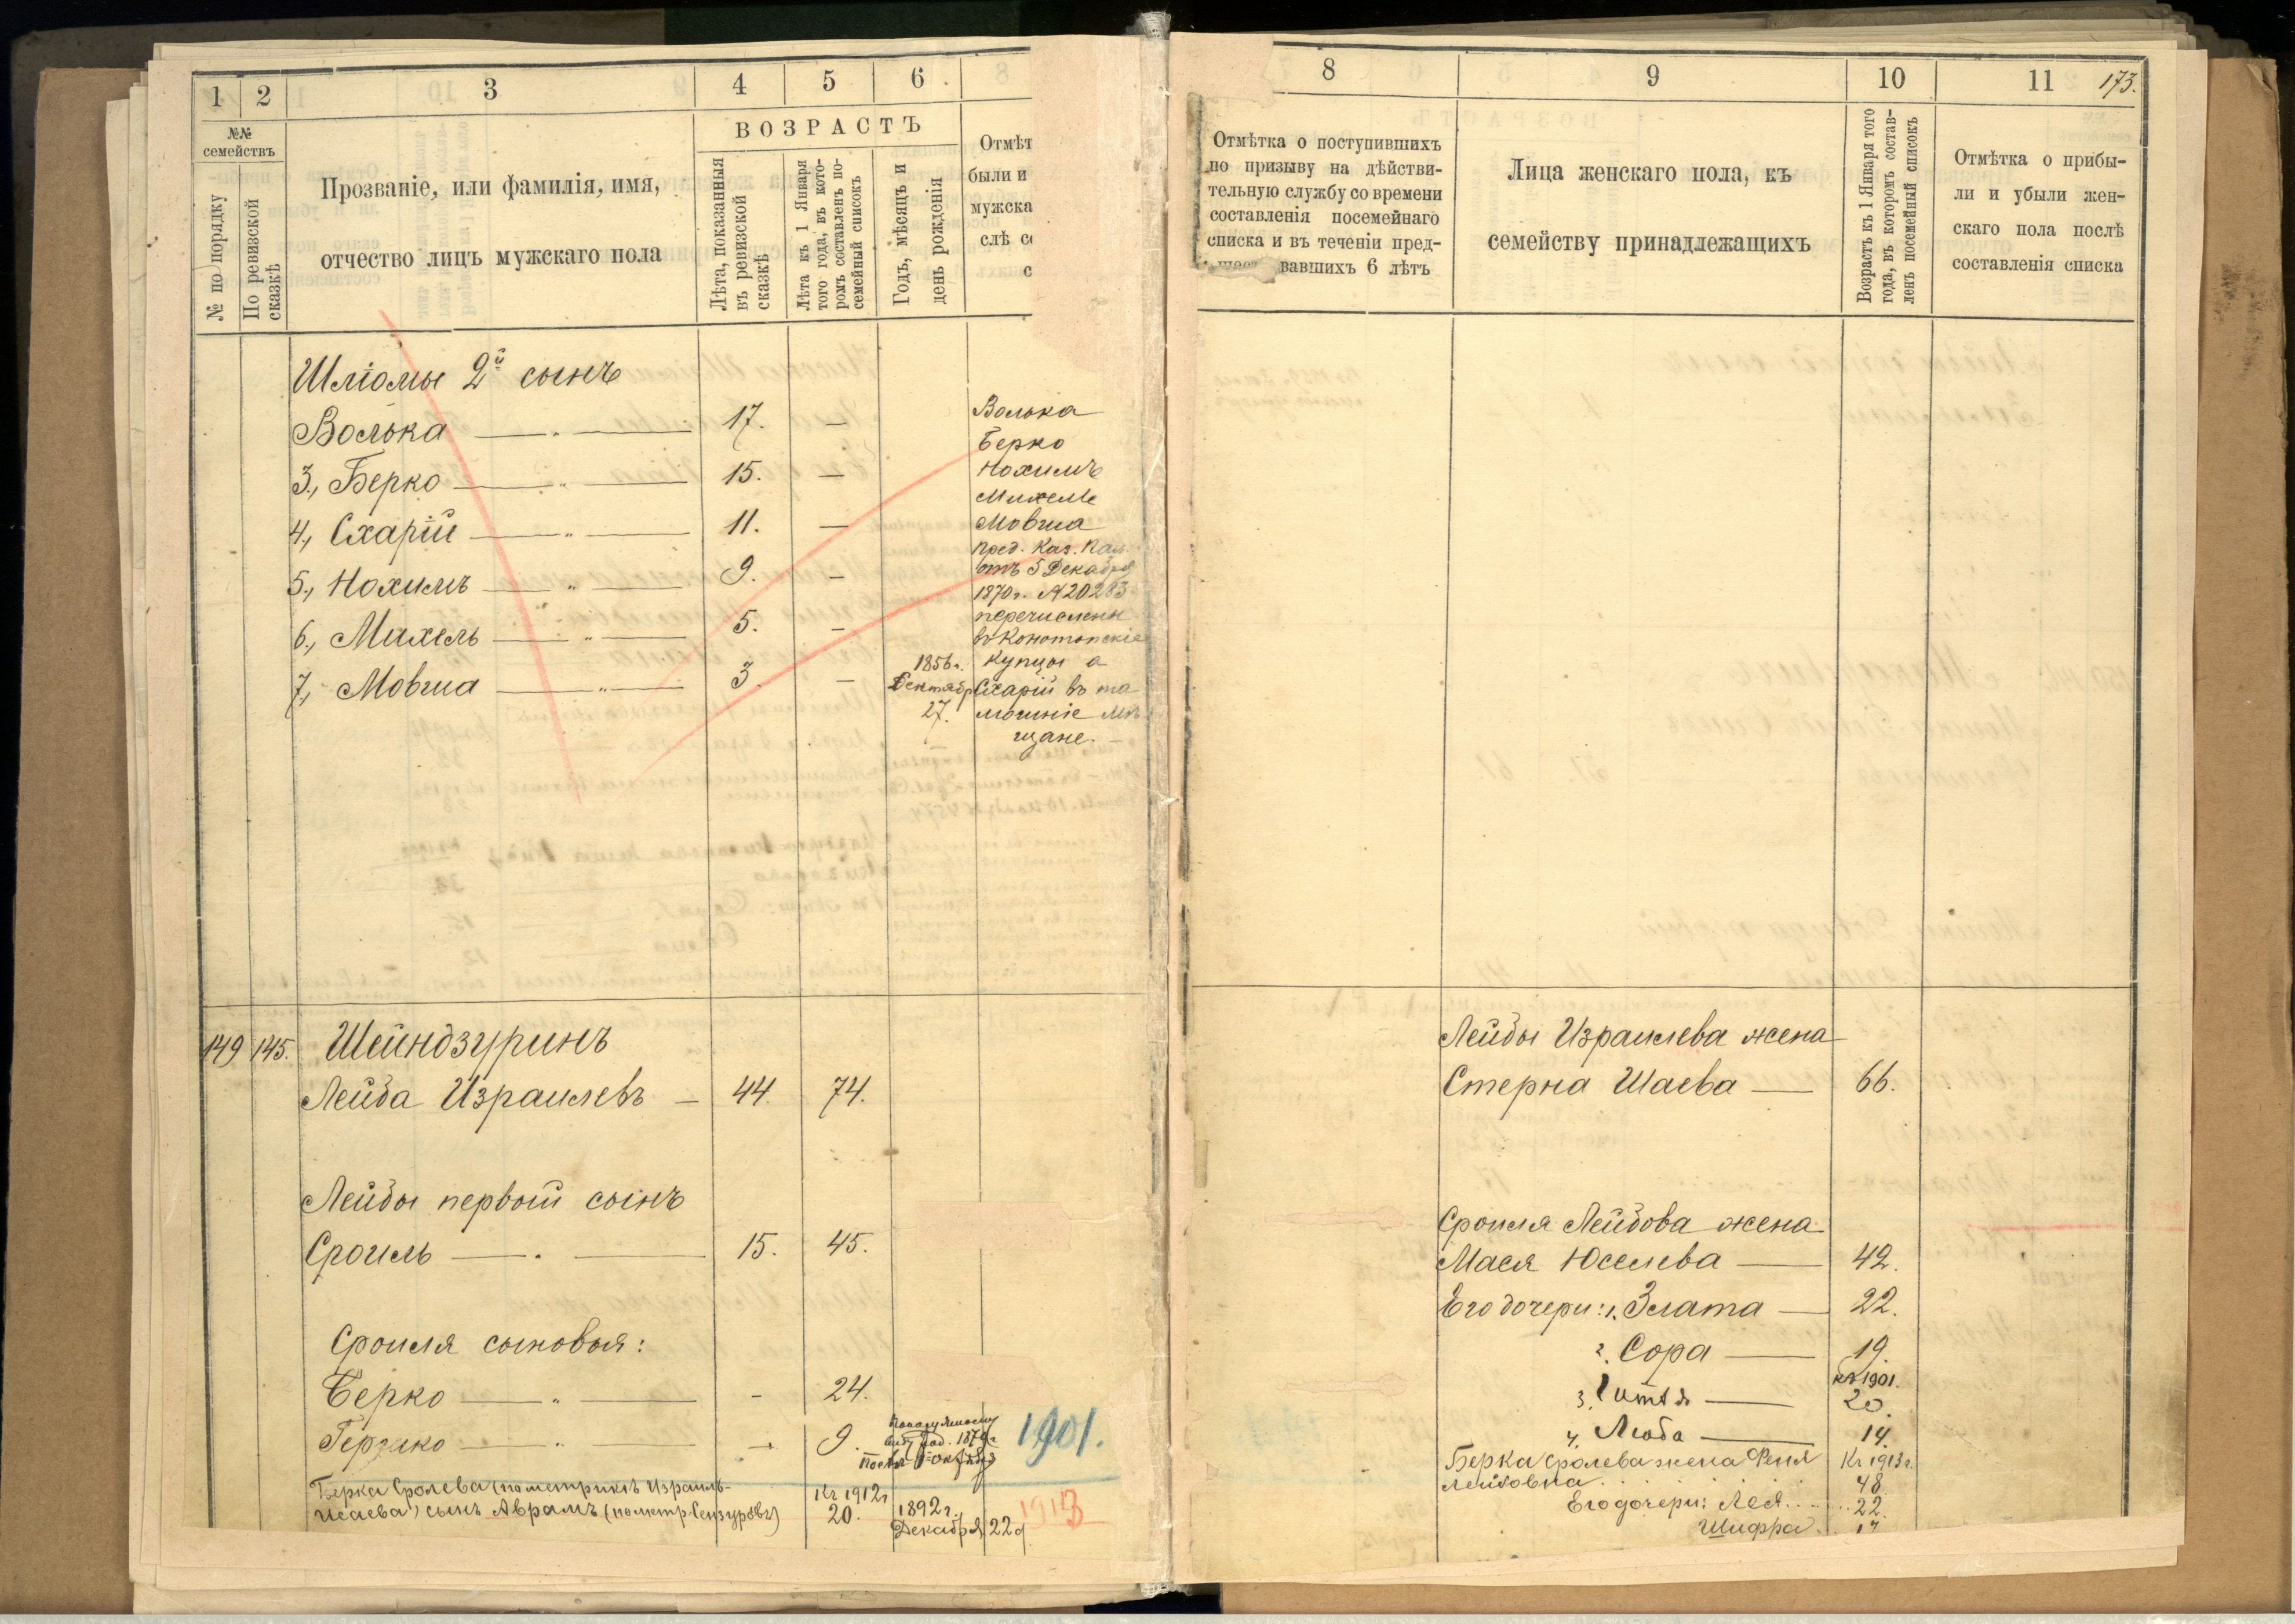 1 2 3 4 5 6 8
№№ семействъ
№ по порядку
По ревизской сказкѣ
Прозваніе, или фамилія, имя,
отчество лицъ мужскаго пола
ВОЗРАСТЪ
Лѣта, показанныя
въ ревизской
сказкѣ
Лѣта къ 1 Января
того года, въ кото-
ромъ составленъ по-
семейный списокъ
Годъ, мѣсяцъ и
день рожденія
Отмѣт
были и
мужска
слѣ со
с
Шліомы 2й сынъ
Волька — " — 17. —
3, Берко — " — 15. —
4, Схарій — " — 11. —
5, Нохимъ — " — 9. —
6, Михель — " — 5. —
7, Мовша — " — 3. — 1856 г.
Сентябр
27.
Волька
Берко
Нохимъ
Михель
Мовша
пред. Каз. Пал.
отъ 5 Декабря
1870 г. № 20283
перечислены
въ Конотопскіе
купцы а
Схарій въ та
мошніе мѣ
щане. —
149 145. Шейндзуринъ
Лейба Израилевъ — 44. 74.
Лейбы первый сынъ
Сроиль — " — 15. 45.
Сроиля сыновья:
Берко — " — - 24.
Гершко — " — - 9.
1901.
Берка Сролева (по метрикѣ Израиль-
Исаева) сынъ Аврамъ
Къ 1912 г
20.
1892 г.
Декабря 22 д
1913
8 9 10 11 173.
Отмѣтка о поступившихъ
по призыву на дѣйстви-
тельную службу со времени
составленія посемейнаго
списка и въ теченіи пред-
вавшихъ 6 лѣтъ
Лица женскаго пола, къ
семейству принадлежащихъ
Возрастъ къ 1 Января того
года, въ которомъ состав-
ленъ посемейный списокъ
Отмѣтка о прибы-
ли и убыли жен-
скаго пола послѣ
составленія списка
Лейбы Израилева жена
Стерна Шаева — 66.
Сроиля Лейбова жена
Мася Юселева — 42.
Его дочери: 1. Злата — 22.
2. Сора — 19.
къ 1901.
3. Итта — 20.
4. Люба — 14.
Берка Сролева жена Феня Къ 1913 г.
Лейбовна 48.
Его дочери: Лея 22.
Шифра 17